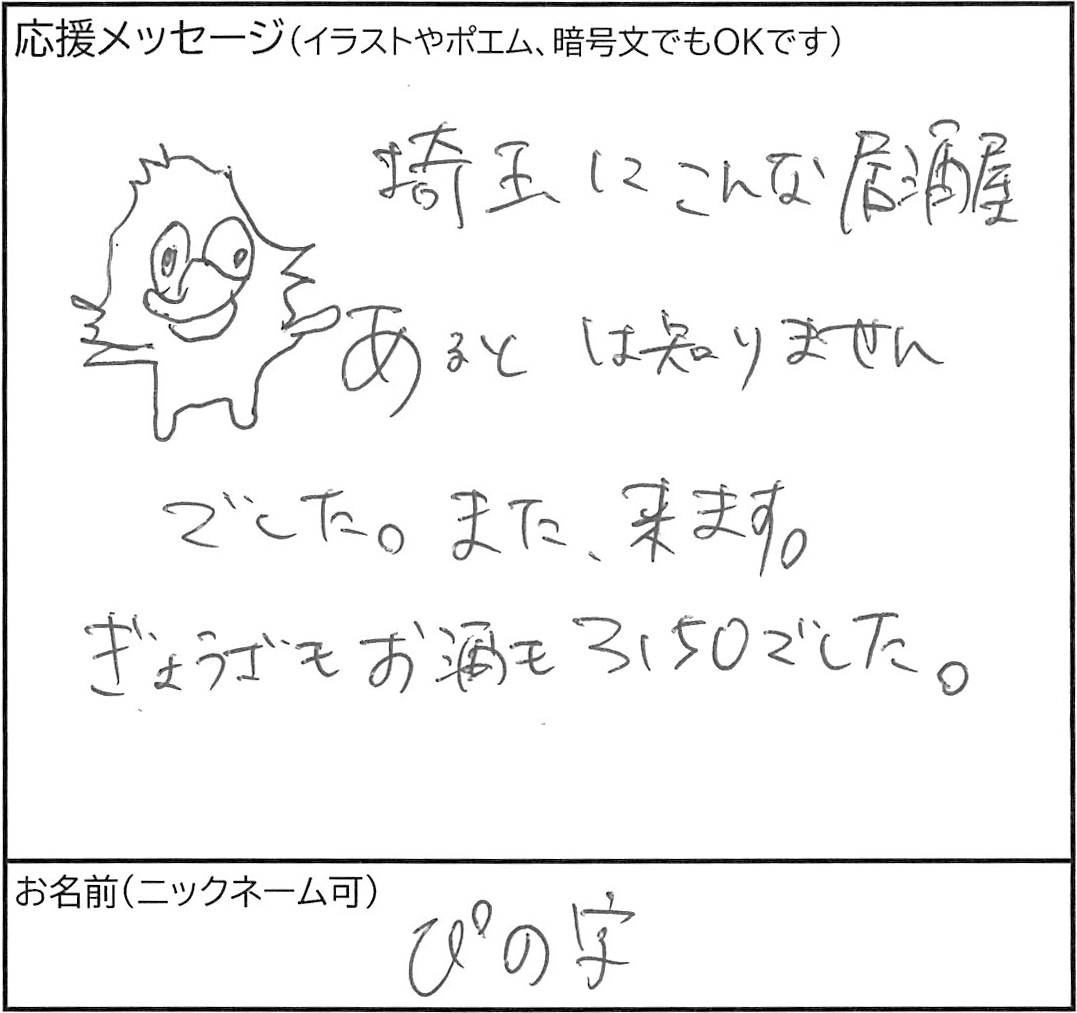 応援メッセージ（イラストやポエム、暗号文でもOKです）
埼玉にこんな居酒屋
あるとは知りません
でした。また、来ます。
ぎょうざもお酒も3150でした。
お名前（ニックネーム可）
ぴの字